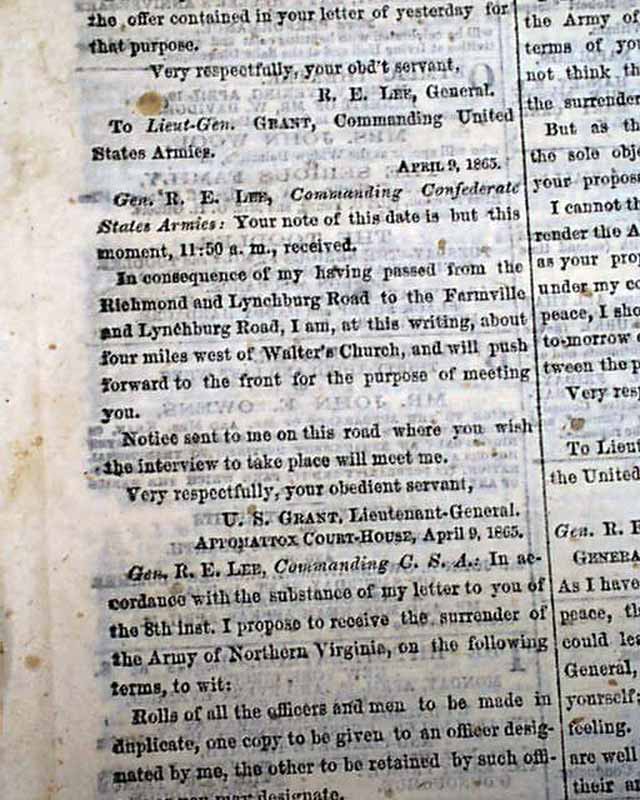 the offer contained in your letter of yesterday for
that purpose.
Very respectfully, your obd't servant,
R. E. LEE, General.
To Lieut-Gen. GRANT, Commanding United
States Armies.
APRIL 9, 1865.
Gen. R. E. LEE, Commanding Confederate
States Armies: Your note of this date is but this
moment, 11:50 a. m., received.
In consequence of my having passed from the
Richmond and Lynchburg Road to the Farmville
and Lynchburg Road, I am, at this writing, about
four miles west of Walter's Church, and will push
forward to the front for the purpose of meeting
you.
Notice sent to me on this road where you wish
the interview to take place will meet me.
Very respectfully, your obedient servant,
U. S. GRANT, Lieutenant-General.
APPOMATTOX COURT-HOUSE, April 9, 1865.
Gen. R. E. LEE, Commanding C. S. A.: In ac-
cordance with the substance of my letter to you of
the 8th inst. I propose to receive the surrender of
the Army of Northern Virginia, on the following
terms, to wit:
Rolls of all the officers and men to be made in
duplicate, one copy to be given to an officer desig-
nated by me, the other to be retained by such offi-
you may designate.
the Army o
terms of yo
not think th
the surrender
But as th
the sole obje
your propos
I cannot th
render the A
as your prop
under my co
peace, I sho
to-morrow
tween the p
Very resp
To Lieut
the United
Gen. R. E
GENERA
As I have
peace, th
could lea
General,
yourself;
feeling.
are well
their a